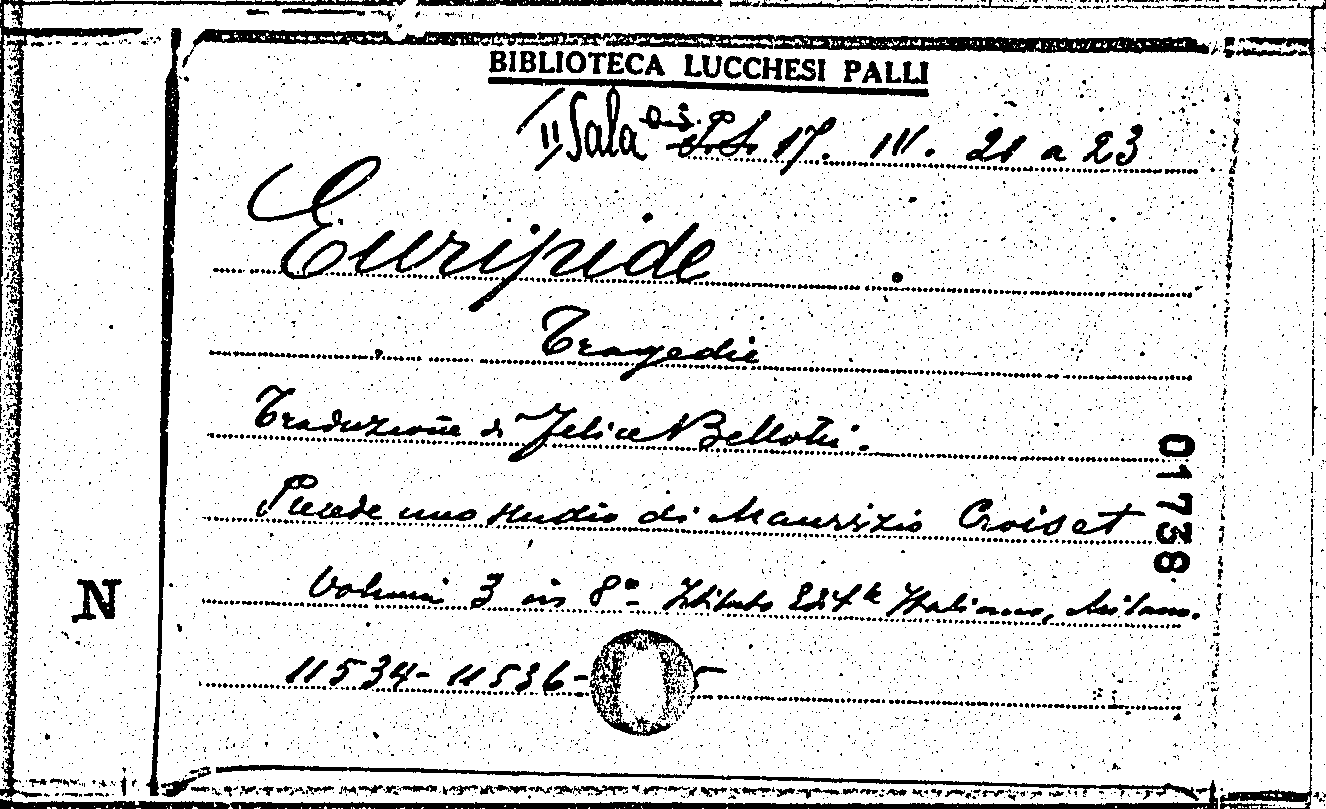 BIBLIOTECA LUCCHESI PALLI
II Sala 17. IV. 21 a 23
Euripide
Tragedie
Traduzione di Felice Bellotti.
Precede uno studio di Maurizio Croiset
Volumi 3 in 8º Istituto Edit. Italiano, Milano.
11534- 11536-
01738
N